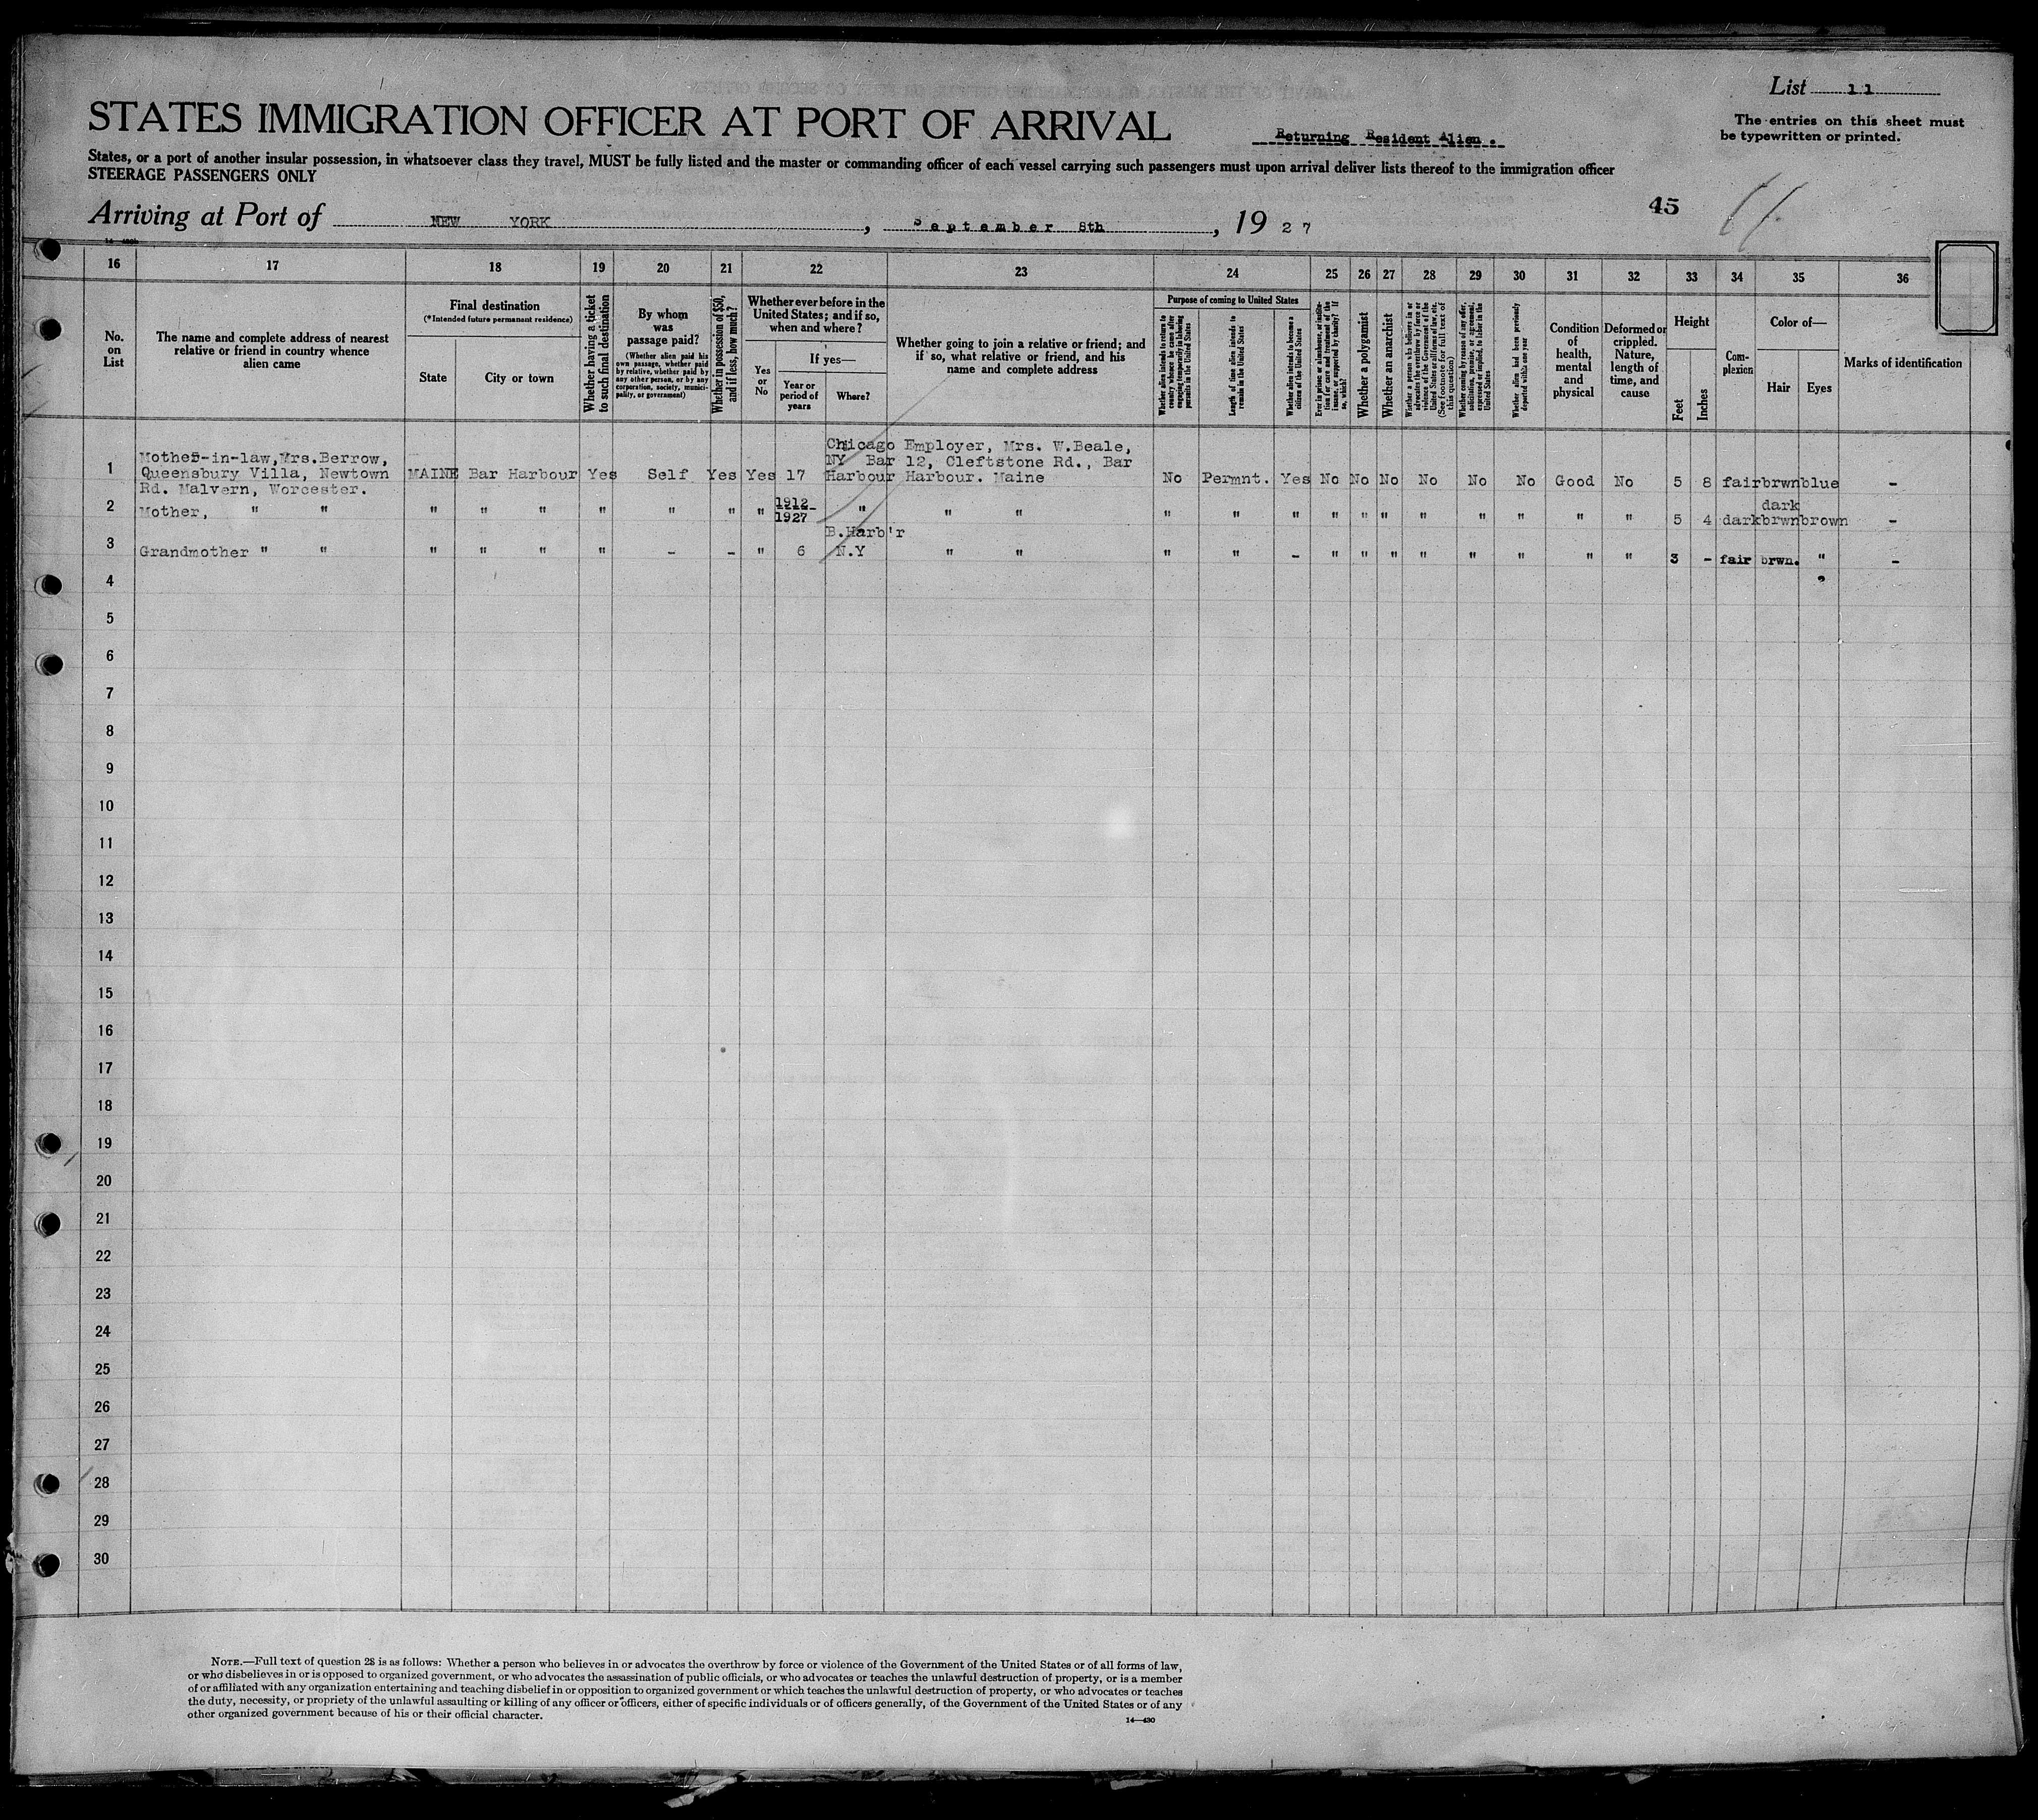 List 11
STATES IMMIGRATION OFFICER AT PORT OF ARRIVAL
Returning Resident Alien.
The entries on this sheet must
be typewritten or printed.
States, or a port of another insular possession, in whatsoever class they travel, MUST be fully listed and the master or commanding officer of each vessel carrying such passengers must upon arrival deliver lists thereof to the immigration officer
STEERAGE PASSENGERS ONLY
Arriving at Port of NEW YORK, September 8th, 1927
45
11.
16 17 18 19 20 21 22 23 24 25 26 27 28 29 30 31 32 33 34 35 36
No.
on
List
The name and complete address of nearest
relative or friend in country whence
alien came
Final destination
(*Intended future permanent residence)
State
City or town
Whether having a ticket
to such final destination
By whom
was
passage paid?
(Whether alien paid his
own passage, whether paid
by relative, whether paid by
any other person, or by any
corporation, society, munici-
pality, or government)
Whether in possession of $50,
and if less, how much?
Whether ever before in the
United States; and if so,
when and where?
Yes
or
No
If yes—
Year or
period of
years
Where?
Whether going to join a relative or friend; and
if so, what relative or friend, and his
name and complete address
Purpose of coming to United States
Whether alien intends to return to
country whence he came after
engaging temporarily in laboring
pursuits in the United States
Length of time alien intends to
remain in the United States
Whether alien intends to become a
citizen of the United States
Ever in prison or almshouse, or institu-
tion for care and treatment of the
insane, or supported by charity? If
so, which?
Whether a polygamist
Whether an anarchist
Whether a person who believes in or
advocates the overthrow by force or
violence of the Government of the
United States or all forms of law, etc.
(See footnote for full text of
this question)
Whether coming by reason of any offer,
solicitation, promise, or agreement,
expressed or implied, to labor in the
United States
Whether alien had been previously
deported within one year
Condition
of
health,
mental
and
physical
Deformed or
crippled.
Nature,
length of
time, and
cause
Height
Feet
Inches
Com-
plexion
Color of—
Hair
Eyes
Marks of identification
Chicago Employer, Mrs. W.Beale,
Mother-in-law,Mrs.Berrow,
NY Bar 12, Cleftstone Rd., Bar
1 Queensbury Villa, Newtown MAINE Bar Harbour Yes Self Yes Yes 17 Harbour Harbour. Maine No Permnt. Yes No No No No No No Good No 5 8 fair brwn blue -
Rd. Malvern, Worcester.
1912-
dark
2 Mother, " " " " " " " " " 1927 " " " " " " " " " " " " " " 5 4 dark brwn brown -
B.Harb'r
3 Grandmother " " " " " " - - " 6 N.Y " " " " - " " " " " " " " 3 - fair brwn. " -
4
5
6
7
8
9
10
11
12
13
14
15
16
17
18
19
20
21
22
23
24
25
26
27
28
29
30
NOTE.—Full text of question 28 is as follows: Whether a person who believes in or advocates the overthrow by force or violence of the Government of the United States or of all forms of law,
or who disbelieves in or is opposed to organized government, or who advocates the assassination of public officials, or who advocates or teaches the unlawful destruction of property, or is a member
of or affiliated with any organization entertaining and teaching disbelief in or opposition to organized government or which teaches the unlawful destruction of property, or who advocates or teaches
the duty, necessity, or propriety of the unlawful assaulting or killing of any officer or officers, either of specific individuals or of officers generally, of the Government of the United States or of any
other organized government because of his or their official character.
14—430